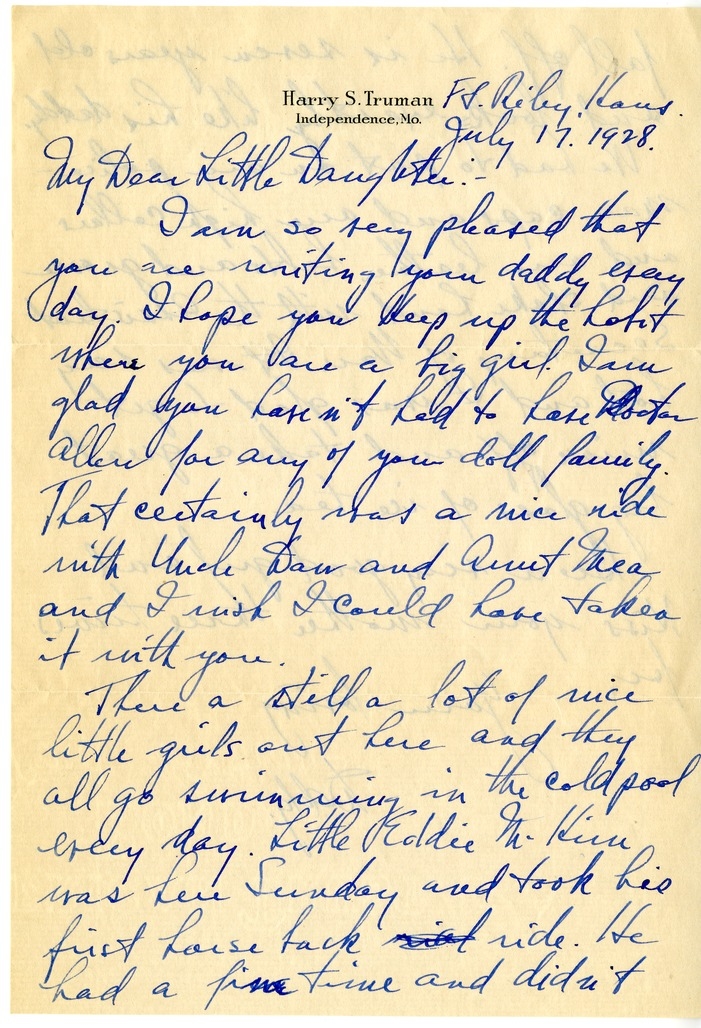 Harry S. Truman
Independence, Mo.
Ft. Riley, Kans.
July 17, 1928.
My Dear Little Daughter:-
I am so very pleased that
you are writing your daddy every
day. I hope you keep up the habit
when you are a big girl. I am
glad you haven't had to have Doctor
Allen for any of your doll family.
That certainly was a nice ride
with Uncle Daw and Aunt Mea
and I wish I could have taken
it with you.
There a still a lot of nice
little girls out here and they
all go swimming in the cold pool
every day. Little Eddie McKim
was here Sunday and took his
first horse back ride. He
had a fine time and didn't